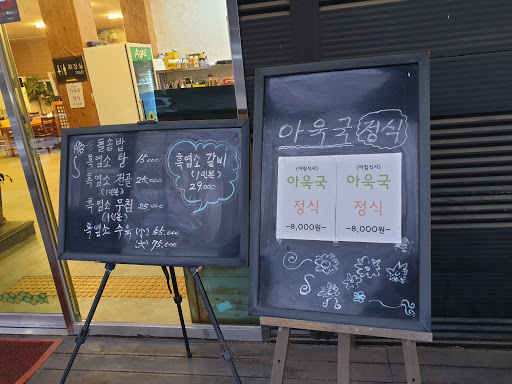 돌솥밥
흑염소 탕 15,000
흑염소 전골 25,000
(1인분)
흑염소 무침 25,000
(1인분)
흑염소 수육 (小) 55,000
(大) 75,000
흑염소 갈비
(1인분)
29,000
아욱국 정식
(아침식사)
아욱국
정식
-8,000원-
(아침식사)
아욱국
정식
-8,000원-